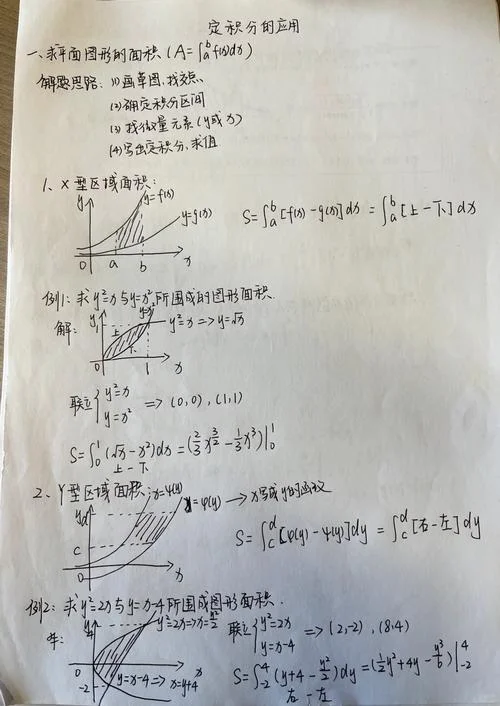 定积分的应用
一、求平面图形的面积 (A=∫_a^b f(x)dx)
解题思路: (1) 画草图, 找交点.
(2) 确定积分区间
(3) 找微量元素 (y或x)
(4) 写出定积分, 求值
1、X型区域面积:
y y=f(x)
y=g(x)
0 a b x
S=∫_a^b [f(x)-g(x)]dx = ∫_a^b [上-下]dx
例1: 求y²=x与y=x²所围成的图形面积.
解: y 1 y=x² y²=x => y=√x
上 下
0 1 x
联立 { y²=x
y=x² => (0,0), (1,1)
S=∫_0^1 (√x-x²)dx = (2/3 x^(3/2) - 1/3 x³)|_0^1
上-下
2、Y型区域面积: x=ψ(y) x=φ(y) → x写成y的函数
y d
c
0 x
S=∫_c^d [φ(y)-ψ(y)]dy = ∫_c^d [右-左]dy
例2: 求y²=2x与y=x-4所围成图形面积.
解: y 4 y²=2x => x=y²/2
0 x
-2 y=x-4 => x=y+4
联立 { y²=2x
y=x-4 => (2,-2), (8,4)
S=∫_-2^4 (y+4-y²/2)dy = (1/2 y²+4y-y³/6)|_-2^4
右-左